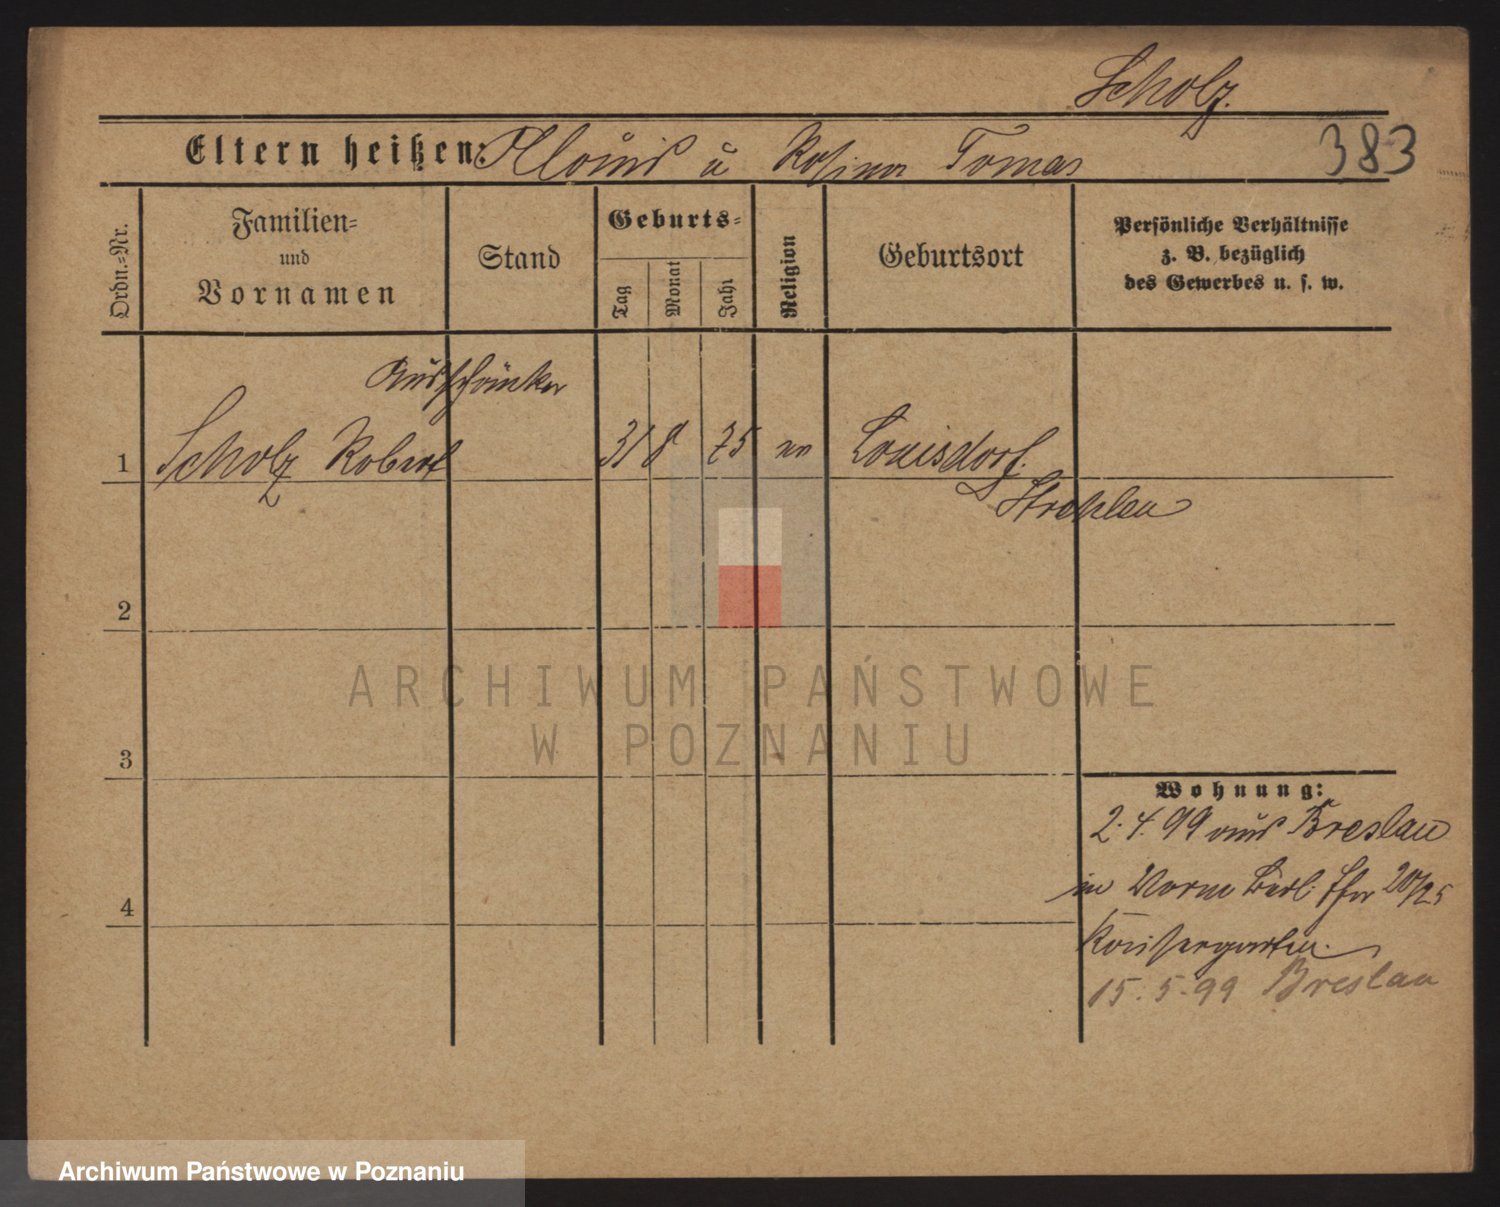 Scholz.
383
Eltern heißen: Alouis u Rosina Tomas
Ordn.=Nr.
Familien=
und
Vornamen
Stand
Geburts=
Tag
Monat
Jahr
Religion
Geburtsort
Persönliche Verhältnisse
z. B. bezüglich
des Gewerbes u. s. w.
Ausschänker
1 Scholz Robert 31 8 75 Louisdorf.
Strehlen
2
3
4
Wohnung:
2.4.99 aus Breslau
in 20/25
15.5.99 Breslau
ARCHIWUM PAŃSTWOWE
W POZNANIU
Archiwum Państwowe w Poznaniu